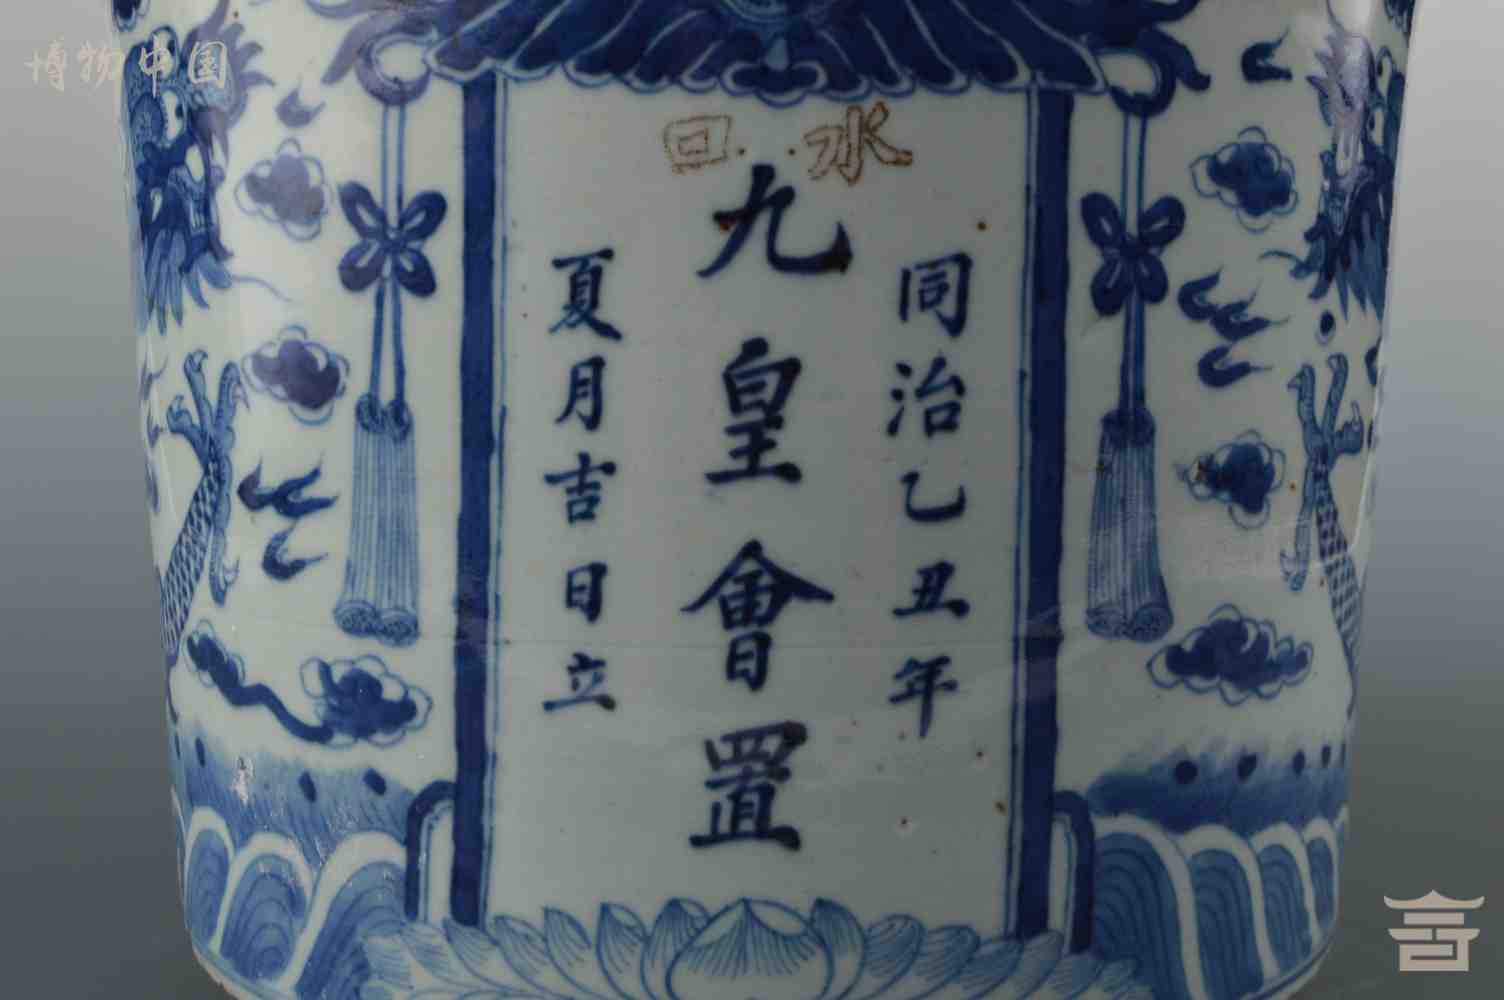 博物中国
水··曰
同治乙丑年
九皇會置
夏月吉日立